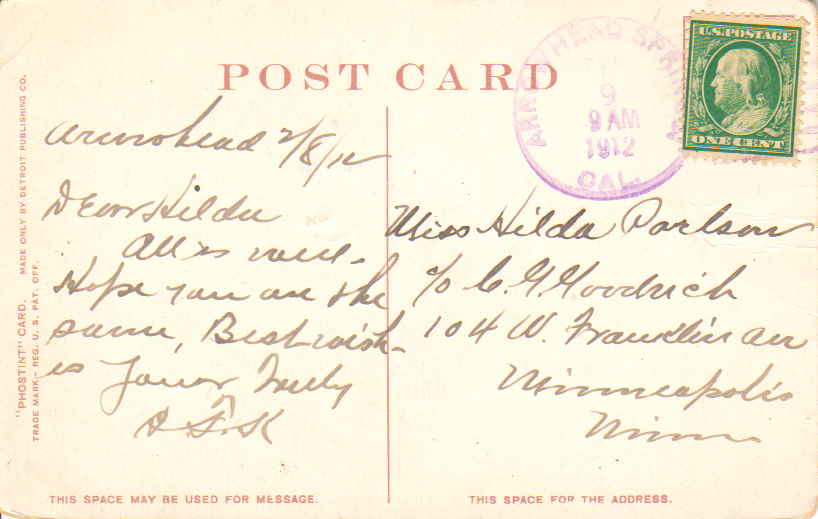 POST CARD
ARROWHEAD SPRINGS
FEB
9
9 AM
1912
CAL.
U.S. POSTAGE
ONE CENT
Arrowhead 2/8/12
Dear Hilda
All is well.
Hope you are the
same, Best wish-
es Yours Truly
Miss Hilda Parlson
c/o C. G. Goodrich
104 W. Franklin av
Minneapolis
Minn
"PHOSTINT" CARD. MADE ONLY BY DETROIT PUBLISHING CO.
TRADE MARK,- REG. U. S. PAT. OFF.
THIS SPACE MAY BE USED FOR MESSAGE.
THIS SPACE FOR THE ADDRESS.